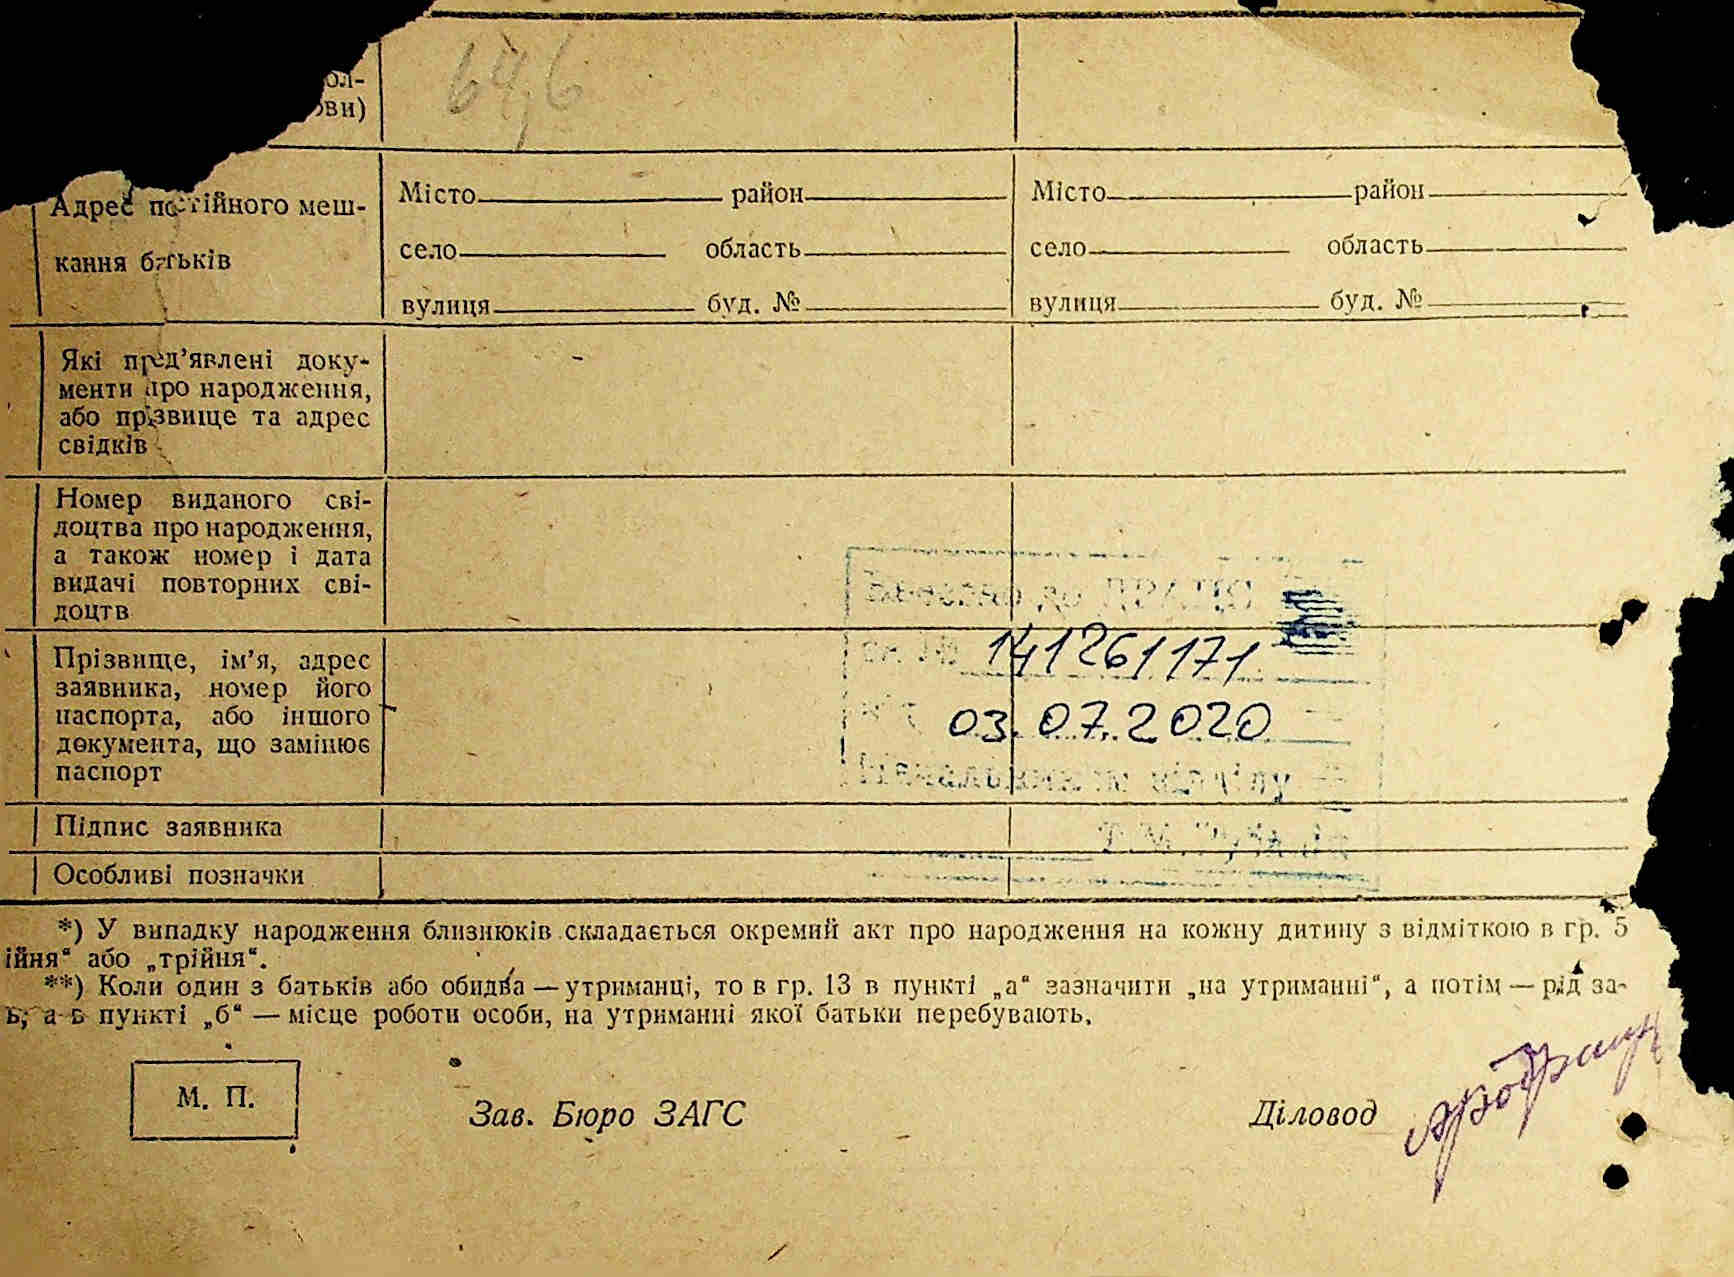 64,6
Адрес постійного меш-
кання батьків
Місто район
село область
вулиця буд. №
Місто район
село область
вулиця буд. №
Які пред’явлені доку-
менти про народження,
або прізвище та адрес
свідків
Номер виданого сві-
доцтва про народження,
а також номер і дата
видачі повторних сві-
доцтв
Прізвище, ім’я, адрес
заявника, номер його
паспорта, або іншого
документа, що замінює
паспорт
141261171
03.07.2020
Підпис заявника
Особливі позначки
*) У випадку народження близнюків складається окремий акт про народження на кожну дитину з відміткою в гр. 5
ійня“ або „трійня“.
**) Коли один з батьків або обидва — утриманці, то в гр. 13 в пункті „а“ зазначити „на утриманні“, а потім — рід за-
ь, а в пункті „б“ — місце роботи особи, на утриманні якої батьки перебувають.
М. П.
Зав. Бюро ЗАГС
Діловод